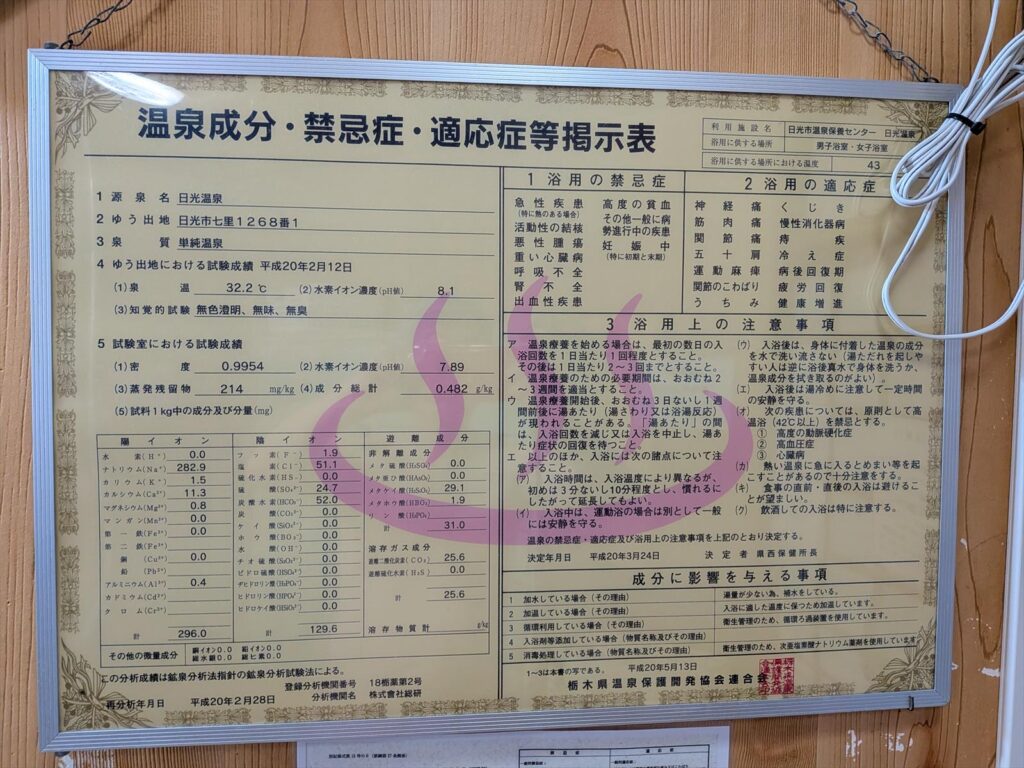 温泉成分・禁忌症・適応症等掲示表
利用施設名 日光市温泉保養センター 日光温泉
浴用に供する場所 男子浴室・女子浴室
浴用に供する場所における温度 43
1 源泉名 日光温泉
2 ゆう出地 日光市七里1268番1
3 泉質 単純温泉
4 ゆう出地における試験成績 平成20年2月12日
(1)泉温 32.2 ℃ (2)水素イオン濃度(pH値) 8.1
(3)知覚的試験 無色澄明、無味、無臭
5 試験室における試験成績
(1)密度 0.9954 (2)水素イオン濃度(pH値) 7.89
(3)蒸発残留物 214 mg/kg (4)成分総計 0.482 g/kg
(5)試料1kg中の成分及び分量(mg)
陽イオン
水素(H⁺) 0.0
ナトリウム(Na⁺) 282.9
カリウム(K⁺) 1.5
カルシウム(Ca²⁺) 11.3
マグネシウム(Mg²⁺) 0.8
マンガン(Mn²⁺) 0.0
第一鉄(Fe²⁺) 0.0
第二鉄(Fe³⁺)
銅(Cu²⁺) 0.0
鉛(Pb²⁺)
アルミニウム(Al³⁺) 0.4
カドミウム(Cd²⁺)
クロム(Cr³⁺)
計 296.0
陰イオン
フッ素(F⁻) 1.9
塩素(Cl⁻) 51.1
硫化水素(HS⁻) 0.0
硫酸(SO₄²⁻) 24.7
炭酸水素(HCO₃⁻) 52.0
炭酸(CO₃²⁻) 0.0
ケイ酸(SiO₃²⁻) 0.0
ホウ酸(BO₂⁻) 0.0
水酸(OH⁻) 0.0
チオ硫酸(S₂O₃²⁻) 0.0
ヒドロ硫酸(HSO₄⁻) 0.0
ヂヒドロリン酸(H₂PO₄⁻) 0.0
ヒドロリン酸(HPO₄²⁻) 0.0
ヒドロケイ酸(HSiO₃⁻) 0.0
計 129.6
遊離成分
非解離成分
メタ硫酸(H₂SO₄) 0.0
メタ亜ひ酸(HAsO₂) 0.0
メタケイ酸(H₂SiO₃) 29.1
メタホウ酸(HBO₂) 1.9
リン酸(H₃PO₄)
計 31.0
溶存ガス成分
遊離二酸化炭素(CO₂) 25.6
遊離硫化水素(H₂S) 0.0
計 25.6
溶存物質計 g/kg
その他の微量成分 銅イオン0.0 鉛イオン0.0
総水銀0.0 総ヒ素0.0
この分析成績は鉱泉分析法指針の鉱泉分析試験法による。
登録分析機関番号 18栃薬第2号
分析機関名 株式会社総研
再分析年月日 平成20年2月28日
1 浴用の禁忌症
急性疾患 高度の貧血
(特に熱のある場合) その他一般に病
活動性の結核 勢進行中の疾患
悪性腫瘍 妊娠中
重い心臓病 (特に初期と末期)
呼吸不全
腎不全
出血性疾患
2 浴用の適応症
神経痛 くじき
筋肉痛 慢性消化器病
関節痛 痔疾
五十肩 冷え症
運動麻痺 病後回復期
関節のこわばり 疲労回復
うちみ 健康増進
3 浴用上の注意事項
ア 温泉療養を始める場合は、最初の数日の入
浴回数を1日当たり1回程度とすること。
その後は1日当たり2～3回までとすること。
イ 温泉療養のための必要期間は、おおむね2
～3週間を適当とすること。
ウ 温泉療養開始後、おおむね3日ないし1週
間前後に湯あたり(湯さわり又は浴湯反応)
が現われることがある。「湯あたり」の間
は、入浴回数を減じ又は入浴を中止し、湯あ
たり症状の回復を待つこと。
エ 以上のほか、入浴には次の諸点について注
意すること。
(ア) 入浴時間は、入浴温度により異なるが、
初めは3分ないし10分程度とし、慣れるに
したがって延長してもよい。
(イ) 入浴中は、運動浴の場合は別として一般
には安静を守る。
(ウ) 入浴後は、身体に付着した温泉の成分
を水で洗い流さない(湯ただれを起しや
すい人は逆に浴後真水で身体を洗うか、
温泉成分を拭き取るのがよい)。
(エ) 入浴後は湯冷めに注意して一定時間
の安静を守る。
(オ) 次の疾患については、原則として高
温浴(42℃以上)を禁忌とする。
① 高度の動脈硬化症
② 高血圧症
③ 心臓病
(カ) 熱い温泉に急に入るとめまい等を起
こすことがあるので十分注意をする。
(キ) 食事の直前・直後の入浴は避けるこ
とが望ましい。
(ク) 飲酒しての入浴は特に注意する。
温泉の禁忌症・適応症及び浴用上の注意事項を上記のとおり決定する。
決定年月日 平成20年3月24日 決定者 県西保健所長
成分に影響を与える事項
1 加水している場合(その理由) 湯量が少ない為、補水をしている。
2 加温している場合(その理由) 入浴に適した温度に保つため加温しています。
3 循環利用している場合(その理由) 衛生管理のため、循環ろ過装置を使用しています。
4 入浴剤等添加している場合(物質名称及びその理由)
5 消毒処理している場合(物質名称及びその理由) 衛生管理のため、次亜塩素酸ナトリウム薬剤を使用しています
1～3は本書の写である。 平成20年5月13日
栃木県温泉保護開発協会連合会